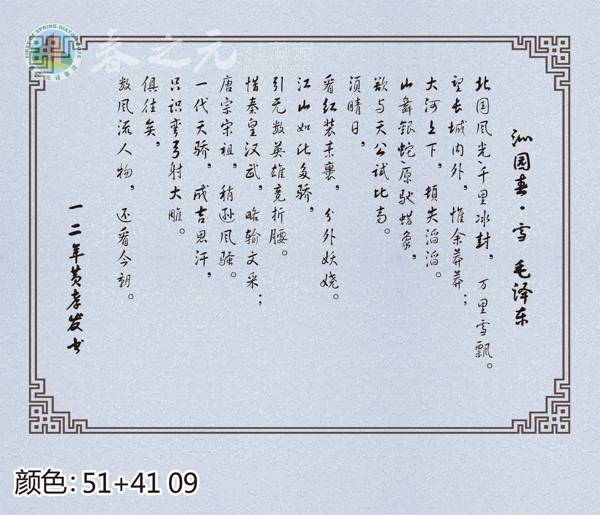 春之元
沁园春·雪 毛泽东
北国风光,千里冰封,万里雪飘。
望长城内外,惟余莽莽;
大河上下,顿失滔滔。
山舞银蛇,原驰蜡象,
欲与天公试比高。
须晴日,
看红装素裹,分外妖娆。
江山如此多骄,
引无数英雄竞折腰。
惜秦皇汉武,略输文采;
唐宗宋祖,稍逊风骚。
一代天骄,成吉思汗,
只识弯弓射大雕。
俱往矣,
数风流人物,还看今朝。
一二年黄孝发书
颜色: 51+41 09